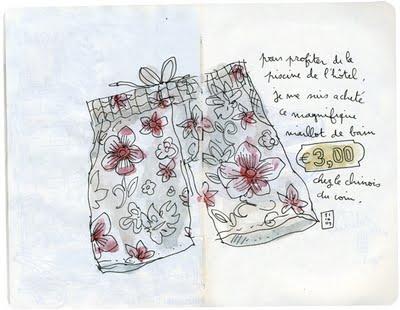 pour profiter de la
piscine de l'hôtel,
je me suis acheté
ce magnifique
maillot de bain
€ 3,00
chez le chinois
du coin.